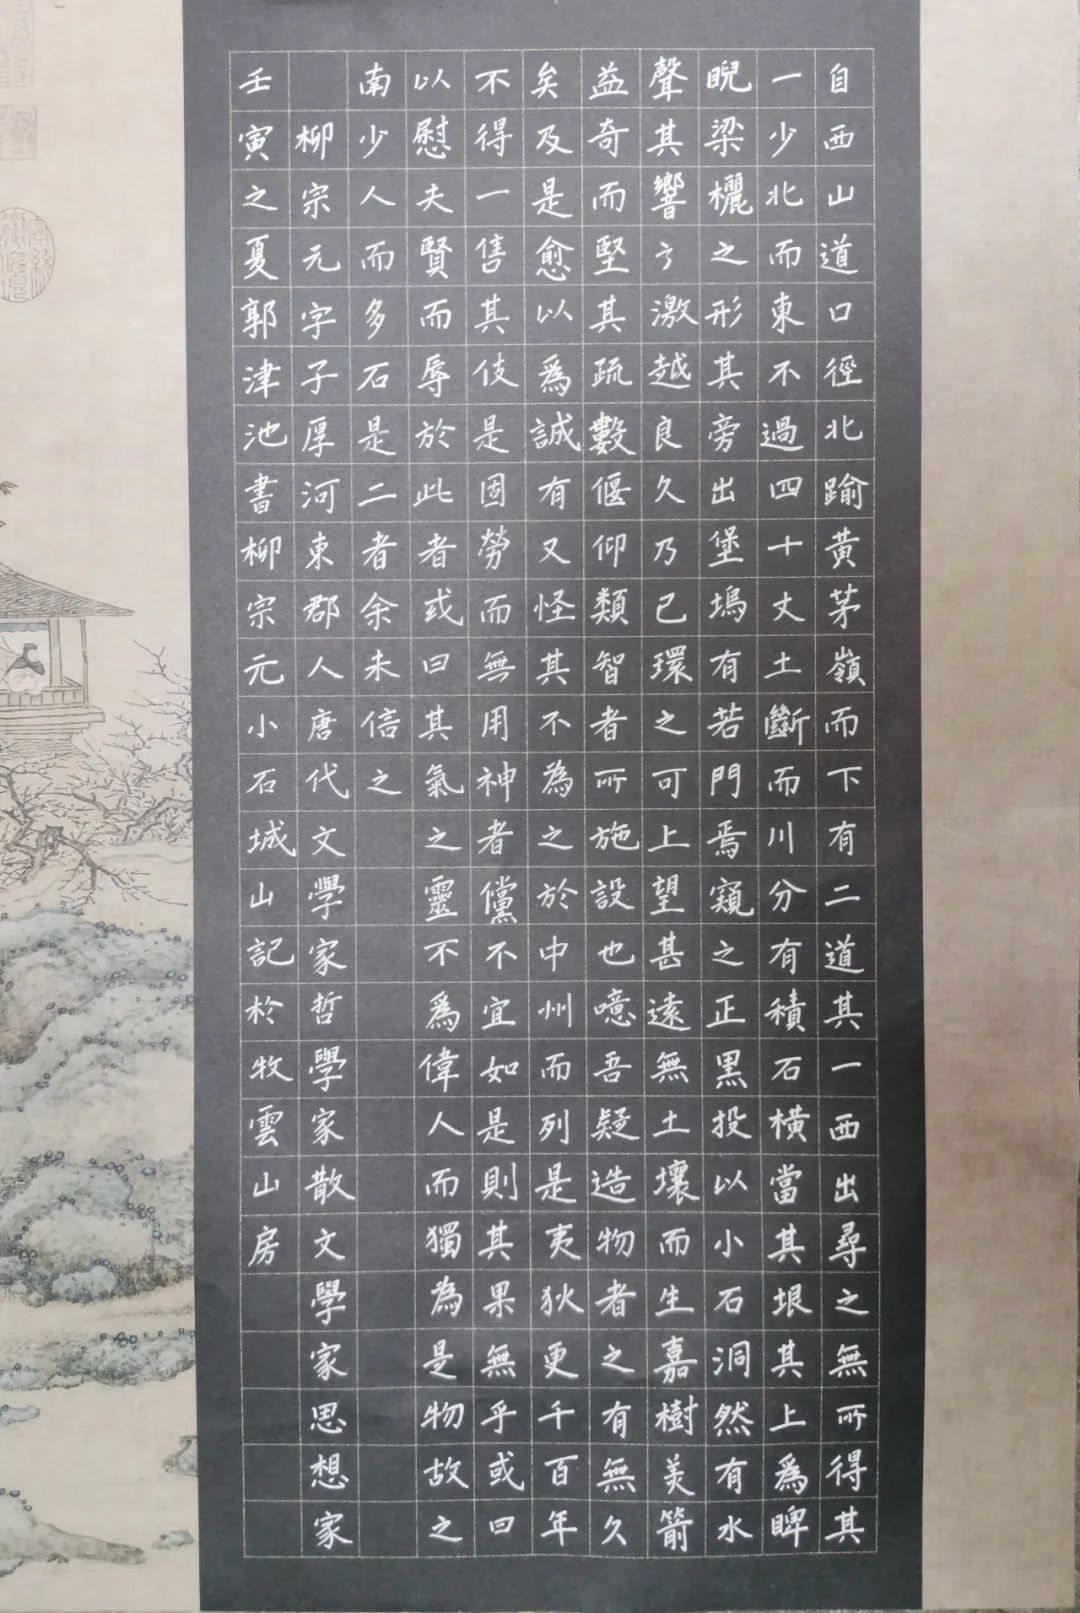 自西山道口徑北踰黃茅嶺而下有二道其一西出尋之無所得其
一少北而東不過四十丈土斷而川分有積石橫當其垠其上爲睥
睨梁欐之形其旁出堡塢有若門焉窺之正黑投以小石洞然有水
聲其響之激越良久乃已環之可上望甚遠無土壤而生嘉樹美箭
益奇而堅其疏數偃仰類智者所施設也噫吾疑造物者之有無久
矣及是愈以爲誠有又怪其不為之於中州而列是夷狄更千百年
不得一售其伎是固勞而無用神者儻不宜如是則其果無乎或曰
以慰夫賢而辱於此者或曰其氣之靈不爲偉人而獨為是物故之
南少人而多石是二者余未信之
柳宗元字子厚河東郡人唐代文學家哲學家散文學家思想家
壬寅之夏郭津池書柳宗元小石城山記於牧雲山房